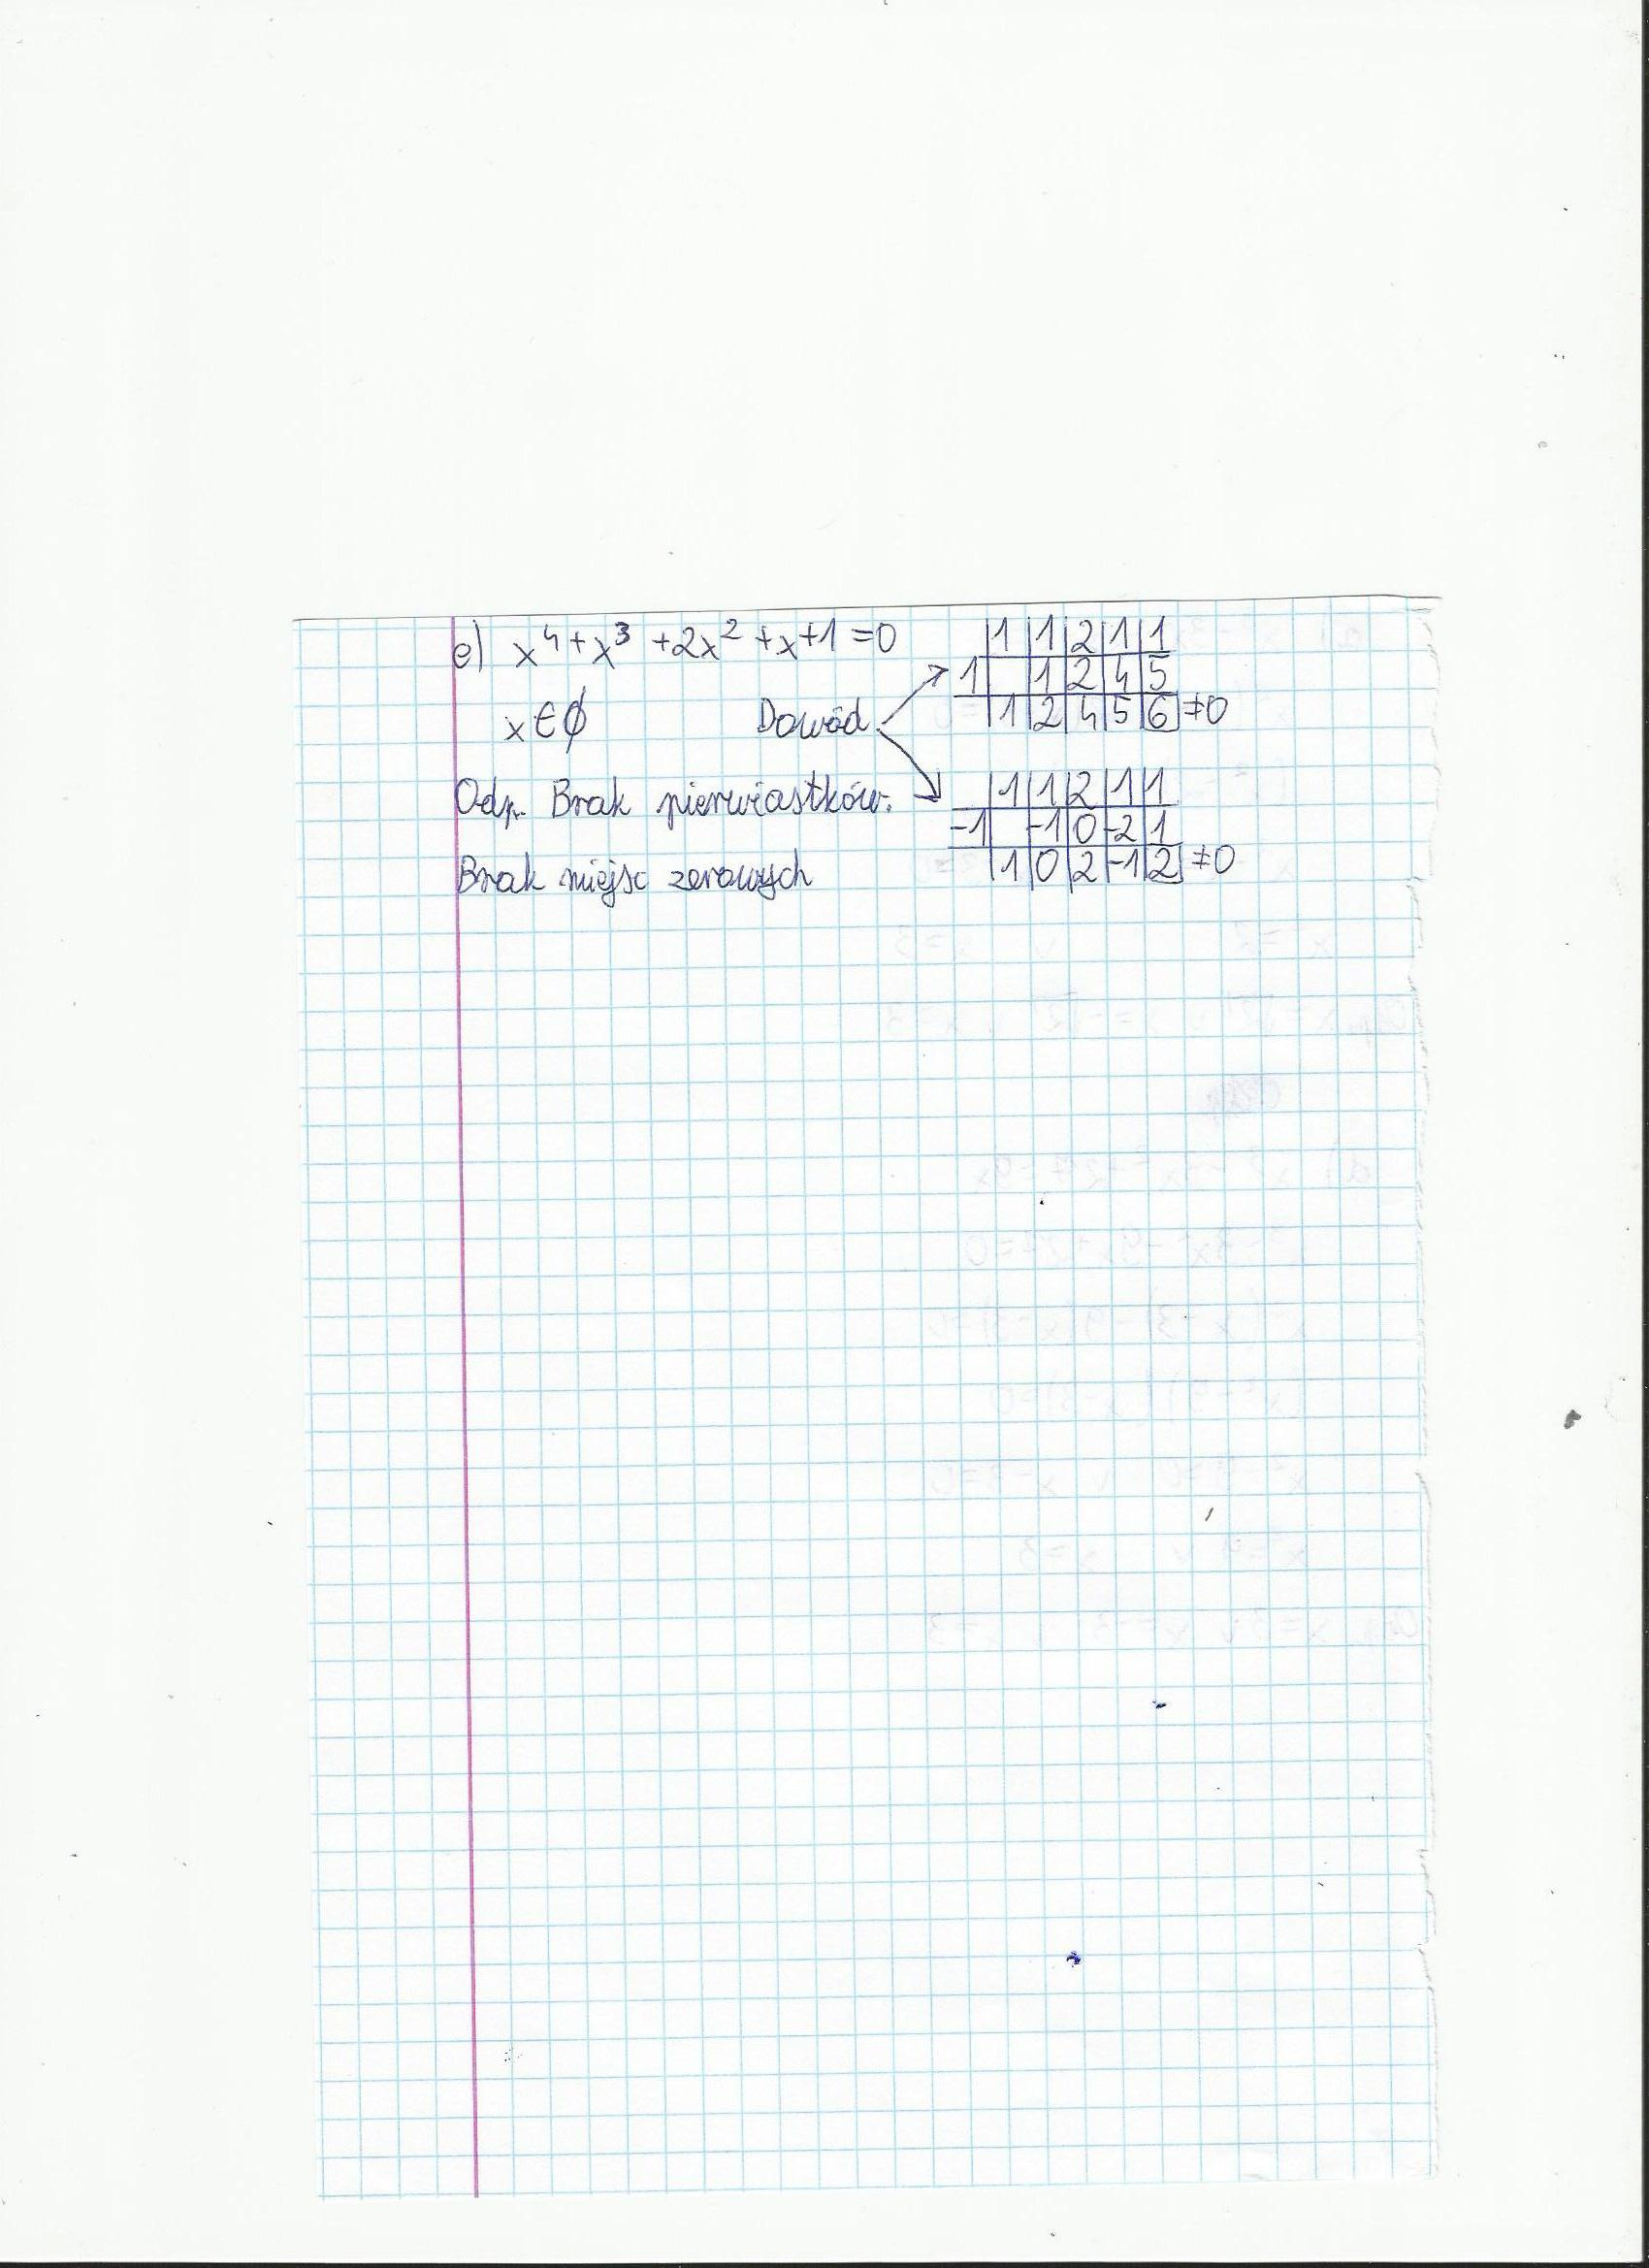 e) x⁴+x³+2x²+x+1=0
x∈∅
Odp. Brak pierwiastków.
Brak miejsc zerowych
Dowód
|1|1|2|1|1
1| |1|2|4|5
|1|2|4|5|6|≠0
|1|1|2|1|1
-1| |-1|0|-2|1
|1|0|2|-1|2|≠0